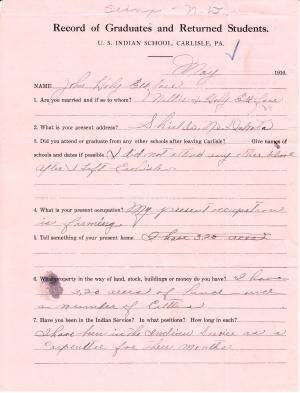 Sioux - N. D.
Record of Graduates and Returned Students.
U. S. INDIAN SCHOOL, CARLISLE, PA.
May 1910.
NAME John Holy Elk Face
1. Are you married and if so to whom? Nellie Holy Elk Face
2. What is your present address? Shields, No. Dakota
3. Did you attend or graduate from any other schools after leaving Carlisle? Give names of
schools and dates if possible I did not attend any other school
after I left Carlisle.
4. What is your present occupation? My present occupation
is farming.
5. Tell something of your present home I have 320 acres
6. What property in the way of land, stock, buildings or money do you have? I have
320 acres of land and
a number of Cattle
7. Have you been in the Indian Service? In what positions? How long in each?
I have been in the Indian Service as a
Carpenter for three months